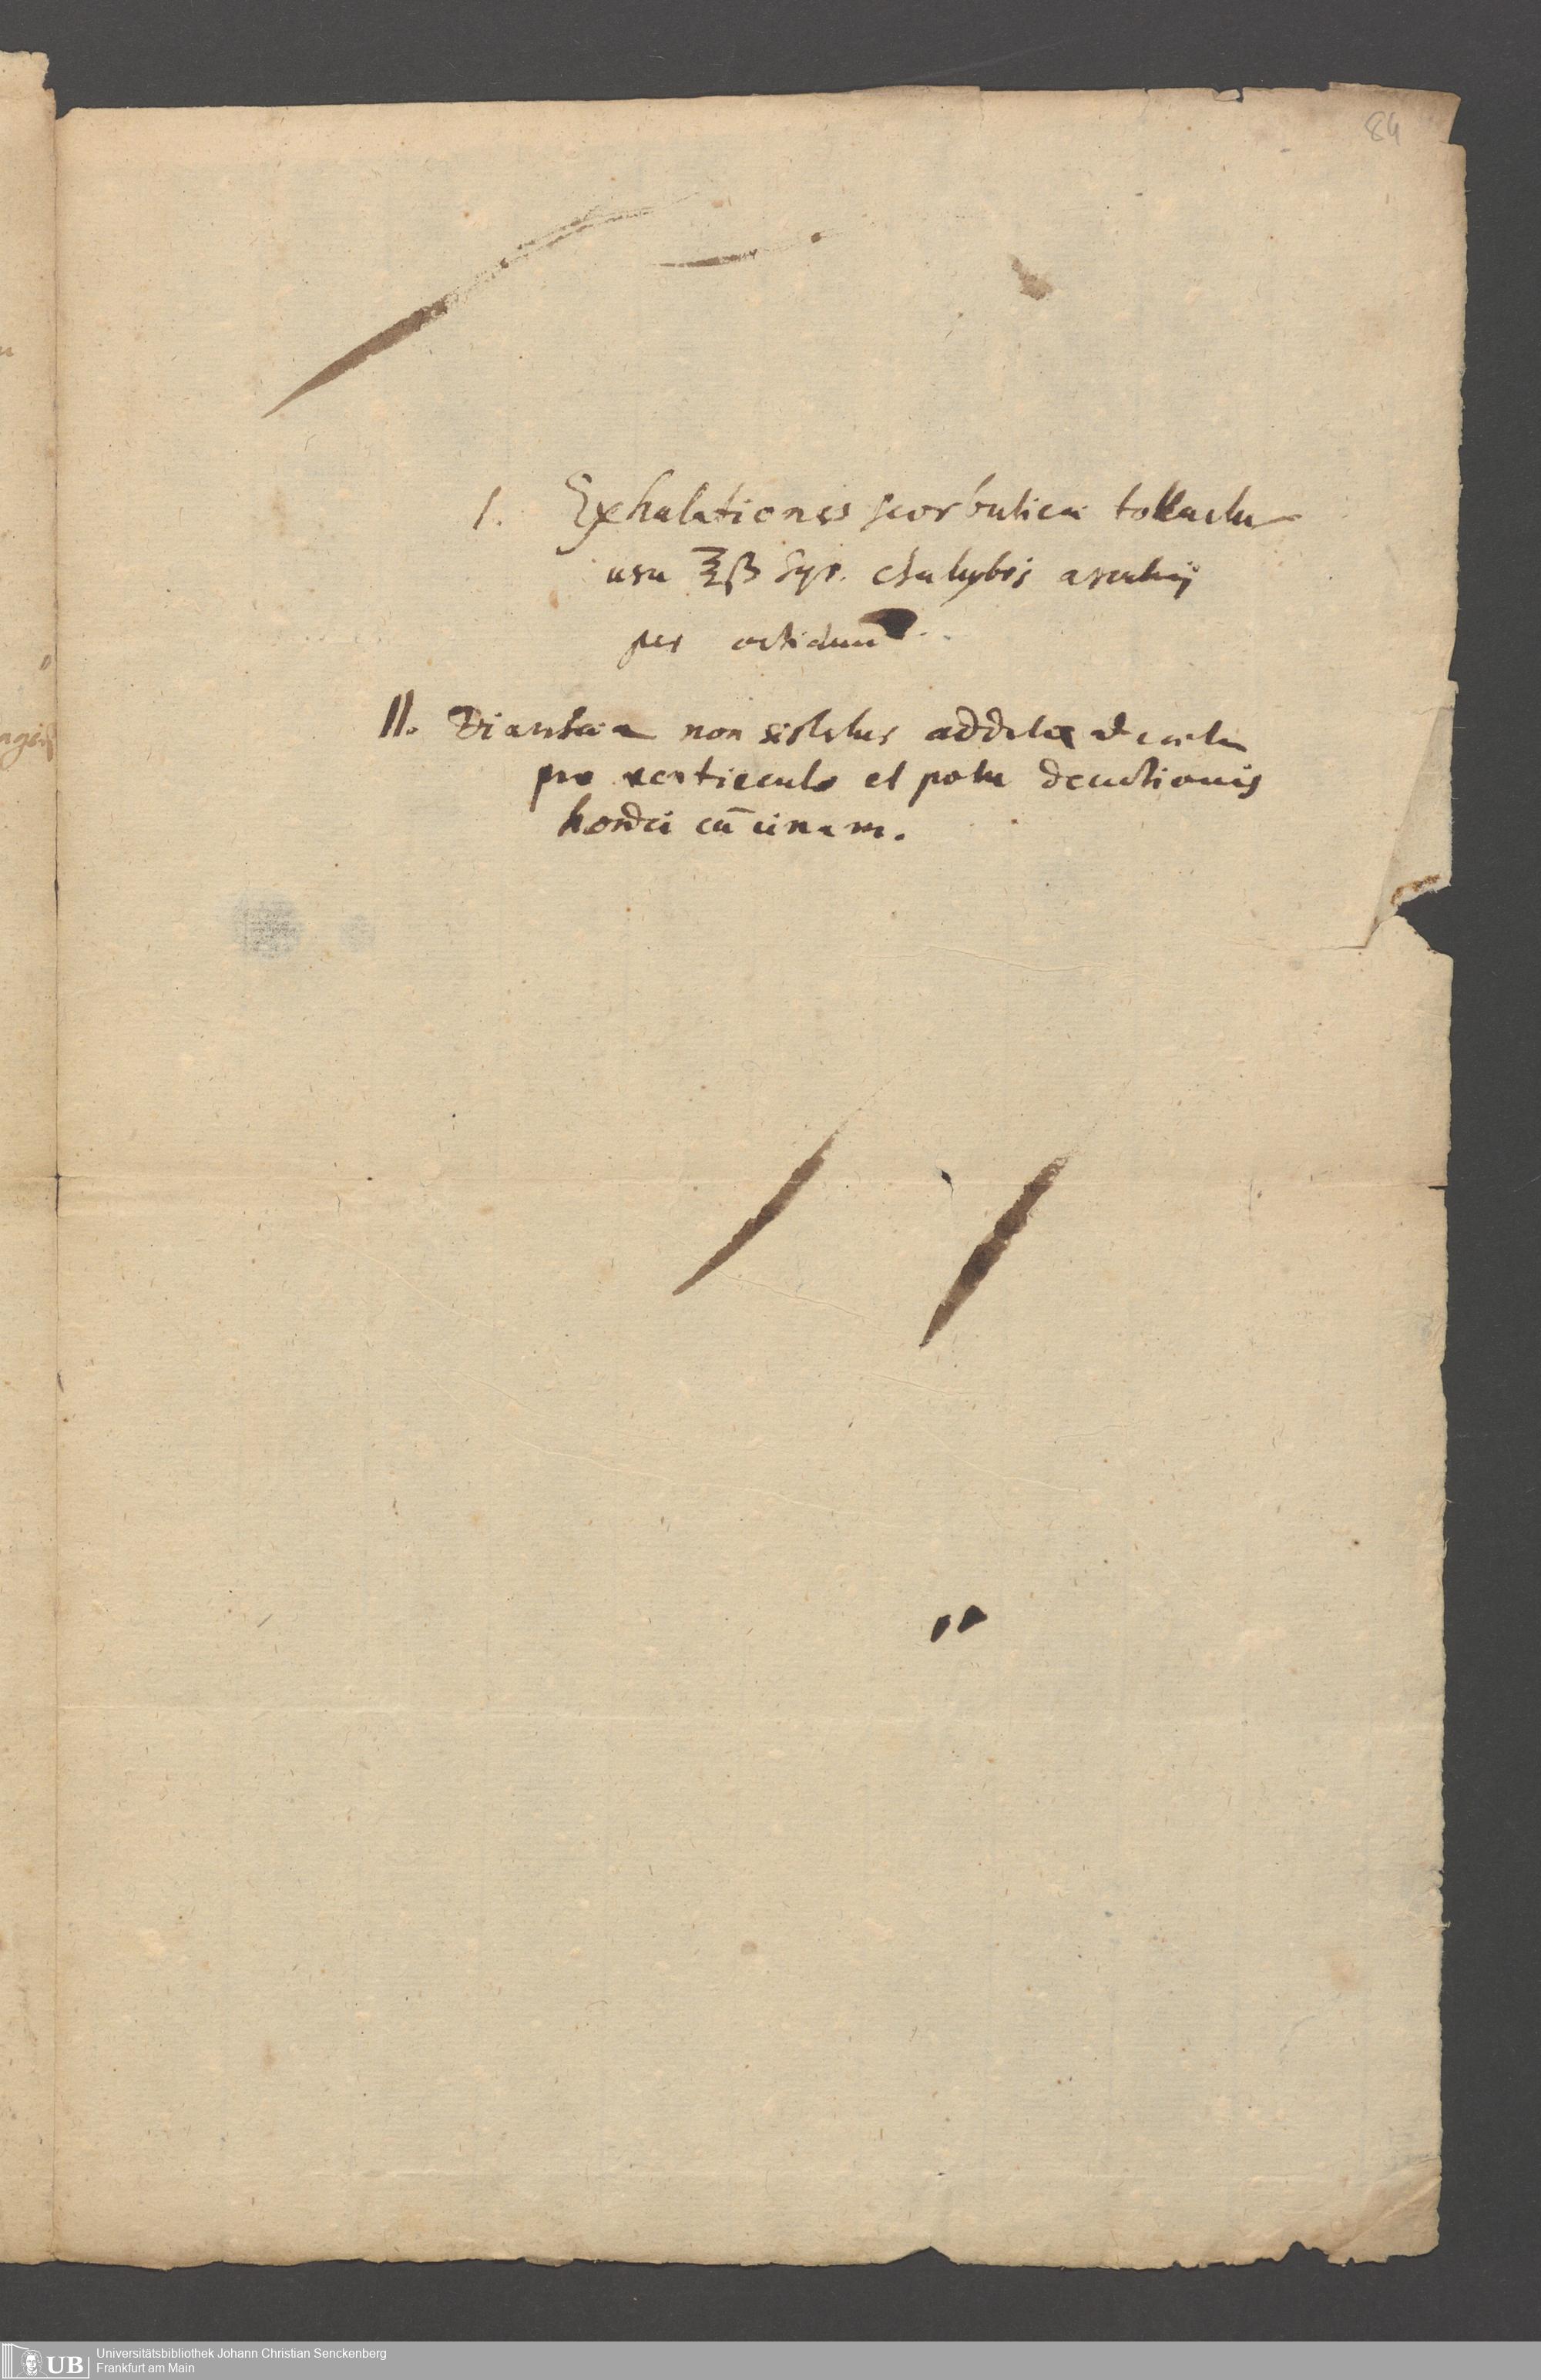 84
I. Exhalationes scorbuticae
usu ℥ß Syr. chalybis
per octiduum
II. Diarrhaea non sistetur addita
pro ventriculo et potu decoctionis
hordei cū cinam.
Universitätsbibliothek Johann Christian Senckenberg
Frankfurt am Main
UB